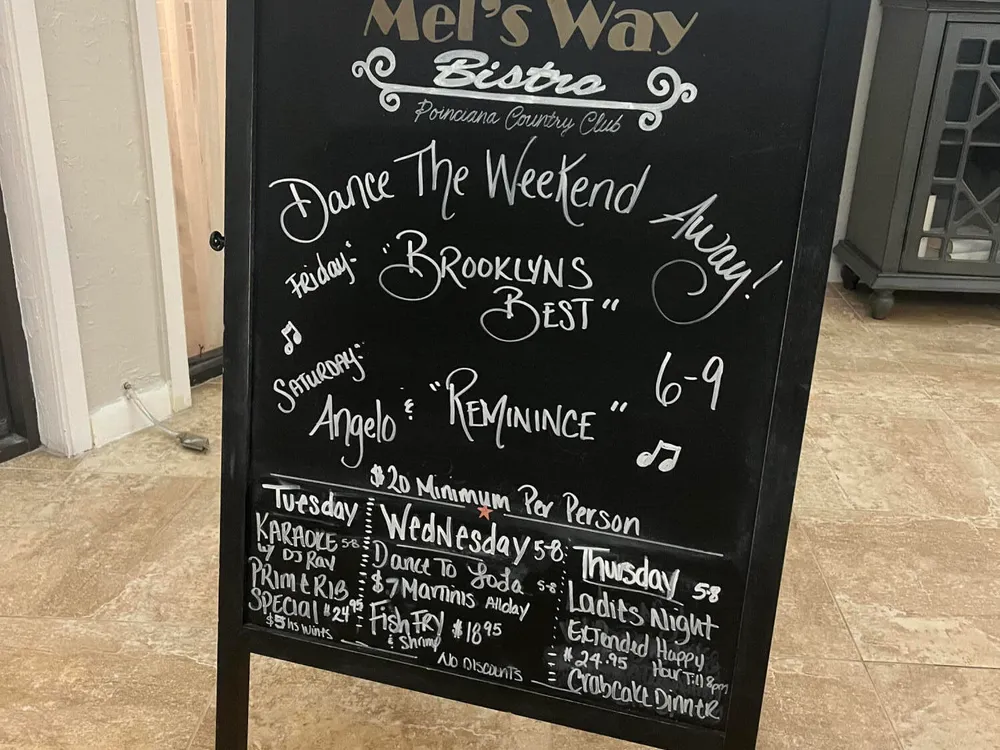 Mel's Way
Bistro
Poinciana Country Club
Dance The Weekend Away!
Friday:
"BROOKLYNS
BEST"
SATURDAY:
6-9
Angelo & "REMININCE"
$20 Minimum Per Person
Tuesday
KARAOKE 5-8
w/ DJ Ray
PRIME RIB
SPECIAL $24.95
$5 hs Wines
Wednesday 5-8
Dance To 5-8
$7 Martinis All day
Fish FRY $18.95
& Shrimp
Thursday 5-8
Ladies Night
Extended Happy
Hour Till 8pm
$24.95
Crabcake Dinner
NO DISCOUNTS